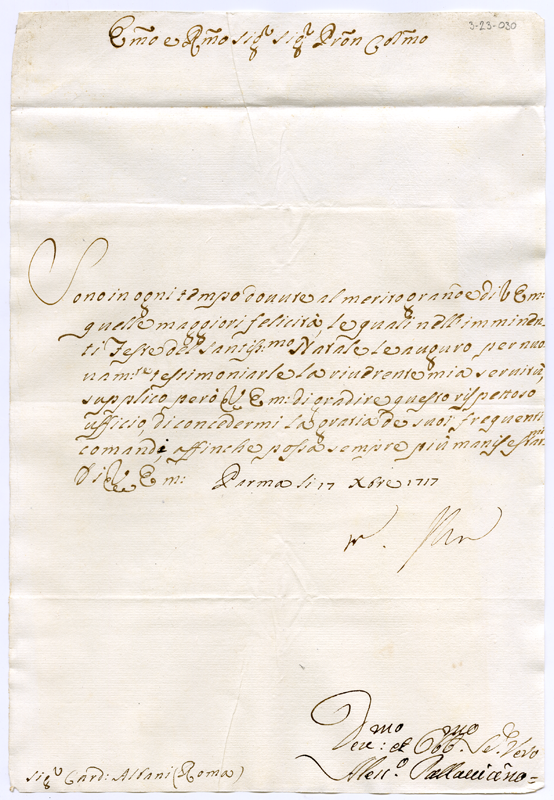 3-23-030
Emo e Rmo Sigr Sigr Pron Colmo
Sono in ogni tempo dovute al merito grañe di V Em:
quelle maggiori felicità, le quali nell'imminen
ti Feste del Santissmo Natale le auguro per nuo
uamte testimoniarle la riuerente mia seruitù,
supplico però V Em: di gradire questo rispettoso
ufficio, di concedermi la gratia de suoi frequenti
comandi, affinche possa sempre più manifestarmi
Di V Em: Parma li 17 Xbre 1717
Dmo
Deu: et Obbmo Sere Vero
Aless.o Pallauicino
Sigr Card: Albani (Roma)